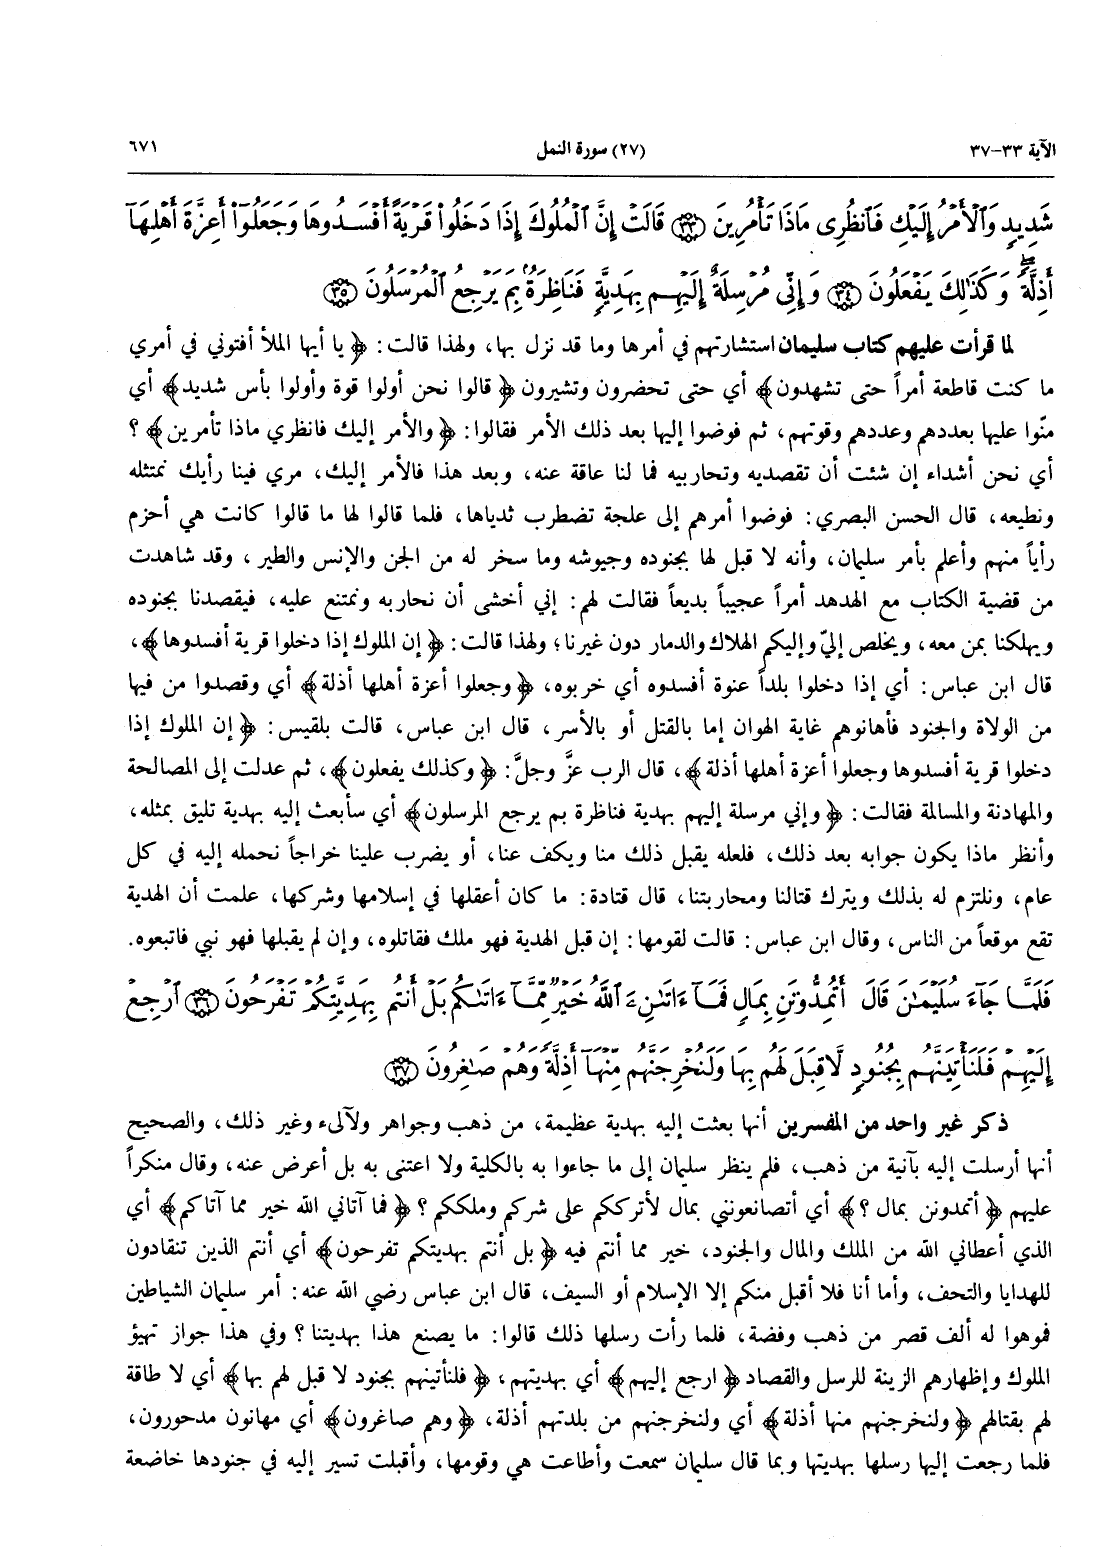 الآية ٣٣-٣٧
(٢٧) سورة النمل
٦٧١
شَدِيدٍ وَٱلْأَمْرُ إِلَيْكِ فَٱنظُرِى مَاذَا تَأْمُرِينَ ﴿٣٣﴾ قَالَتْ إِنَّ ٱلْمُلُوكَ إِذَا دَخَلُوا۟ قَرْيَةً أَفْسَدُوهَا وَجَعَلُوٓا۟ أَعِزَّةَ أَهْلِهَآ
أَذِلَّةً ۖ وَكَذَٰلِكَ يَفْعَلُونَ ﴿٣٤﴾ وَإِنِّى مُرْسِلَةٌ إِلَيْهِم بِهَدِيَّةٍ فَنَاظِرَةٌۢ بِمَ يَرْجِعُ ٱلْمُرْسَلُونَ ﴿٣٥﴾
لما قرأت عليهم كتاب سليمان استشارتهم في أمرها وما قد نزل بها، ولهذا قالت: ﴿يا أيها الملأ أفتوني في أمري
ما كنت قاطعة أمراً حتى تشهدون﴾ أي حتى تحضرون وتشيرون ﴿قالوا نحن أولوا قوة وأولوا بأس شديد﴾ أي
منّوا عليها بعددهم وعددهم وقوتهم، ثم فوضوا إليها بعد ذلك الأمر فقالوا: ﴿والأمر إليك فانظري ماذا تأمرين﴾؟
أي نحن أشداء إن شئت أن تقصديه وتحاربيه فما لنا عاقة عنه، وبعد هذا فالأمر إليك، مري فينا رأيك نمتثله
ونطيعه، قال الحسن البصري: فوضوا أمرهم إلى علجة تضطرب ثدياها، فلما قالوا لها ما قالوا كانت هي أحزم
رأياً منهم وأعلم بأمر سليمان، وأنه لا قبل لها بجنوده وجيوشه وما سخر له من الجن والإنس والطير، وقد شاهدت
من قضية الكتاب مع الهدهد أمراً عجيباً بديعاً فقالت لهم: إني أخشى أن نحاربه ونمتنع عليه، فيقصدنا بجنوده
ويهلكنا بمن معه، ويخلص إليّ وإليكم الهلاك والدمار دون غيرنا؛ ولهذا قالت: ﴿إن الملوك إذا دخلوا قرية أفسدوها﴾،
قال ابن عباس: أي إذا دخلوا بلداً عنوة أفسدوه أي خربوه، ﴿وجعلوا أعزة أهلها أذلة﴾ أي وقصدوا من فيها
من الولاة والجنود فأهانوهم غاية الهوان إما بالقتل أو بالأسر، قال ابن عباس، قالت بلقيس: ﴿إن الملوك إذا
دخلوا قرية أفسدوها وجعلوا أعزة أهلها أذلة﴾، قال الرب عزَّ وجلَّ: ﴿وكذلك يفعلون﴾، ثم عدلت إلى المصالحة
والمهادنة والمسالمة فقالت: ﴿وإني مرسلة إليهم بهدية فناظرة بم يرجع المرسلون﴾ أي سأبعث إليه بهدية تليق بمثله،
وأنظر ماذا يكون جوابه بعد ذلك، فلعله يقبل ذلك منا ويكف عنا، أو يضرب علينا خراجاً نحمله إليه في كل
عام، ونلتزم له بذلك ويترك قتالنا ومحاربتنا، قال قتادة: ما كان أعقلها في إسلامها وشركها، علمت أن الهدية
تقع موقعاً من الناس، وقال ابن عباس: قالت لقومها: إن قبل الهدية فهو ملك فقاتلوه، وإن لم يقبلها فهو نبي فاتبعوه.
فَلَمَّا جَآءَ سُلَيْمَٰنَ قَالَ أَتُمِدُّونَنِ بِمَالٍ فَمَآ ءَاتَىٰنِۦَ ٱللَّهُ خَيْرٌ مِّمَّآ ءَاتَىٰكُم بَلْ أَنتُم بِهَدِيَّتِكُمْ تَفْرَحُونَ ﴿٣٦﴾ ٱرْجِعْ
إِلَيْهِمْ فَلَنَأْتِيَنَّهُم بِجُنُودٍ لَّا قِبَلَ لَهُم بِهَا وَلَنُخْرِجَنَّهُم مِّنْهَآ أَذِلَّةً وَهُمْ صَٰغِرُونَ ﴿٣٧﴾
ذكر غير واحد من المفسرين أنها بعثت إليه بهدية عظيمة، من ذهب وجواهر ولآلىء وغير ذلك، والصحيح
أنها أرسلت إليه بآنية من ذهب، فلم ينظر سليمان إلى ما جاءوا به بالكلية ولا اعتنى به بل أعرض عنه، وقال منكراً
عليهم ﴿أتمدونن بمال؟﴾ أي أتصانعونني بمال لأترككم على شرككم وملككم؟ ﴿فما آتاني الله خير مما آتاكم﴾ أي
الذي أعطاني الله من الملك والمال والجنود، خير مما أنتم فيه ﴿بل أنتم بهديتكم تفرحون﴾ أي أنتم الذين تنقادون
للهدايا والتحف، وأما أنا فلا أقبل منكم إلا الإسلام أو السيف، قال ابن عباس رضي الله عنه: أمر سليمان الشياطين
فموهوا له ألف قصر من ذهب وفضة، فلما رأت رسلها ذلك قالوا: ما يصنع هذا بهديتنا؟ وفي هذا جواز تهيؤ
الملوك وإظهارهم الزينة للرسل والقصاد ﴿ارجع إليهم﴾ أي بهديتهم، ﴿فلنأتينهم بجنود لا قبل لهم بها﴾ أي لا طاقة
لهم بقتالهم ﴿ولنخرجنهم منها أذلة﴾ أي ولنخرجنهم من بلدتهم أذلة، ﴿وهم صاغرون﴾ أي مهانون مدحورون،
فلما رجعت إليها رسلها بهديتها وبما قال سليمان سمعت وأطاعت هي وقومها، وأقبلت تسير إليه في جنودها خاضعة